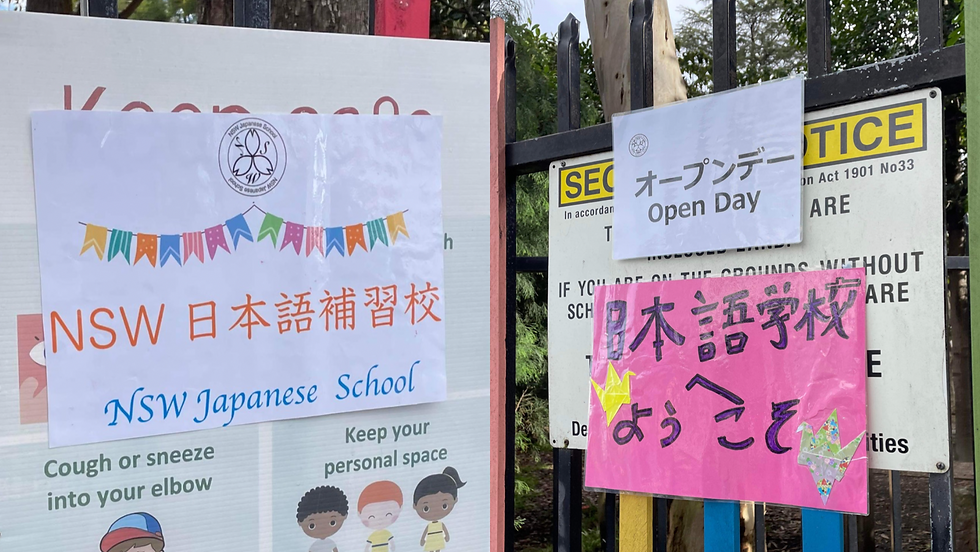 Keep safe
NSW Japanese School
NSW Japanese School
NSW 日本語補習校
NSW Japanese School
Cough or sneeze
into your elbow
Keep your
personal space
オープンデー
Open Day
NOTICE
Act 1901 No33
In accordan
ARE
IF YOU ARE ON THE GROUNDS WITHOUT
ARE
日本語学校
へ
ようこそ